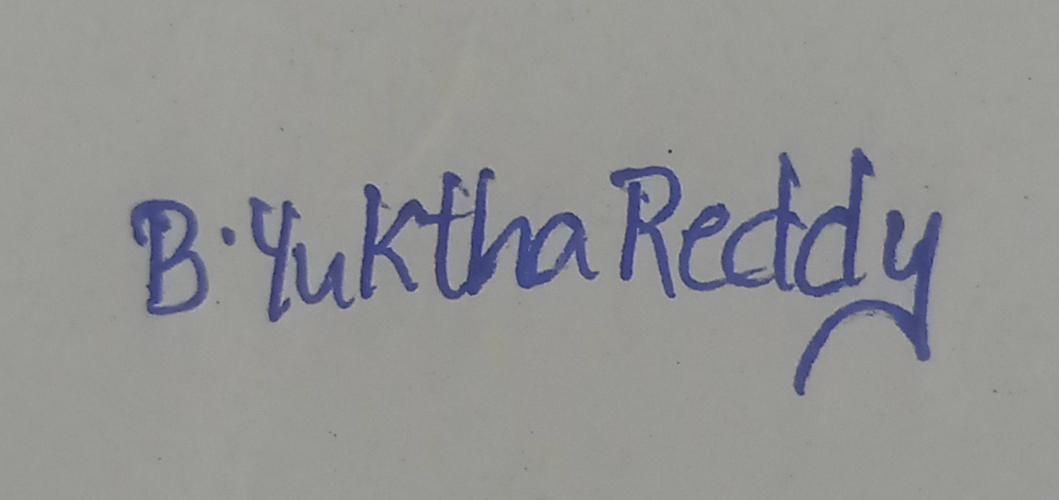 B. Yuktha Reddy